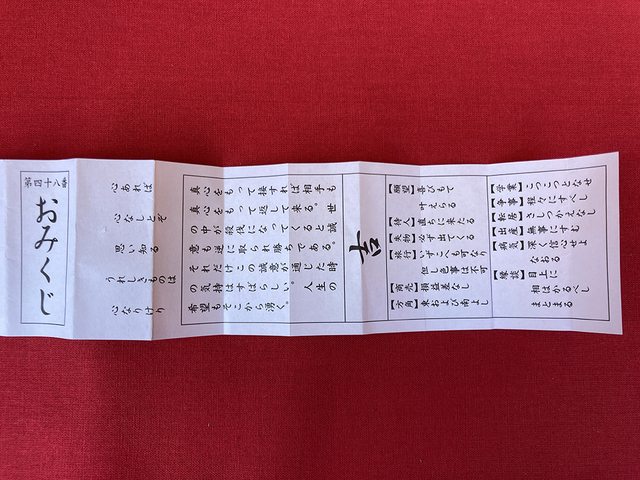 第四十八番
おみくじ
心あれば
心なしとぞ
思い知る
うれしきものは
心なりけり
真心をもって接すれば相手も
真心をもって返して来る。世
の中が殺伐になってくると誠
意も逆に取られ勝ちである。
それだけこの誠意が通じた時
の気持はすばらしい。人生の
希望もそこから湧く。
吉
【願望】喜びもて
叶えらる
【待人】直ちに来たる
【失物】必ず出てくる
【旅行】いずこも可なり
但し色事は不可
【商売】損益差なし
【方角】東および南よし
【学業】こつこつとなせ
【争事】程々にすべし
【転居】さしつかえなし
【出産】無事にすむ
【病気】深く信心せよ
なおる
【縁談】目上に
相はかるべし
まとまる